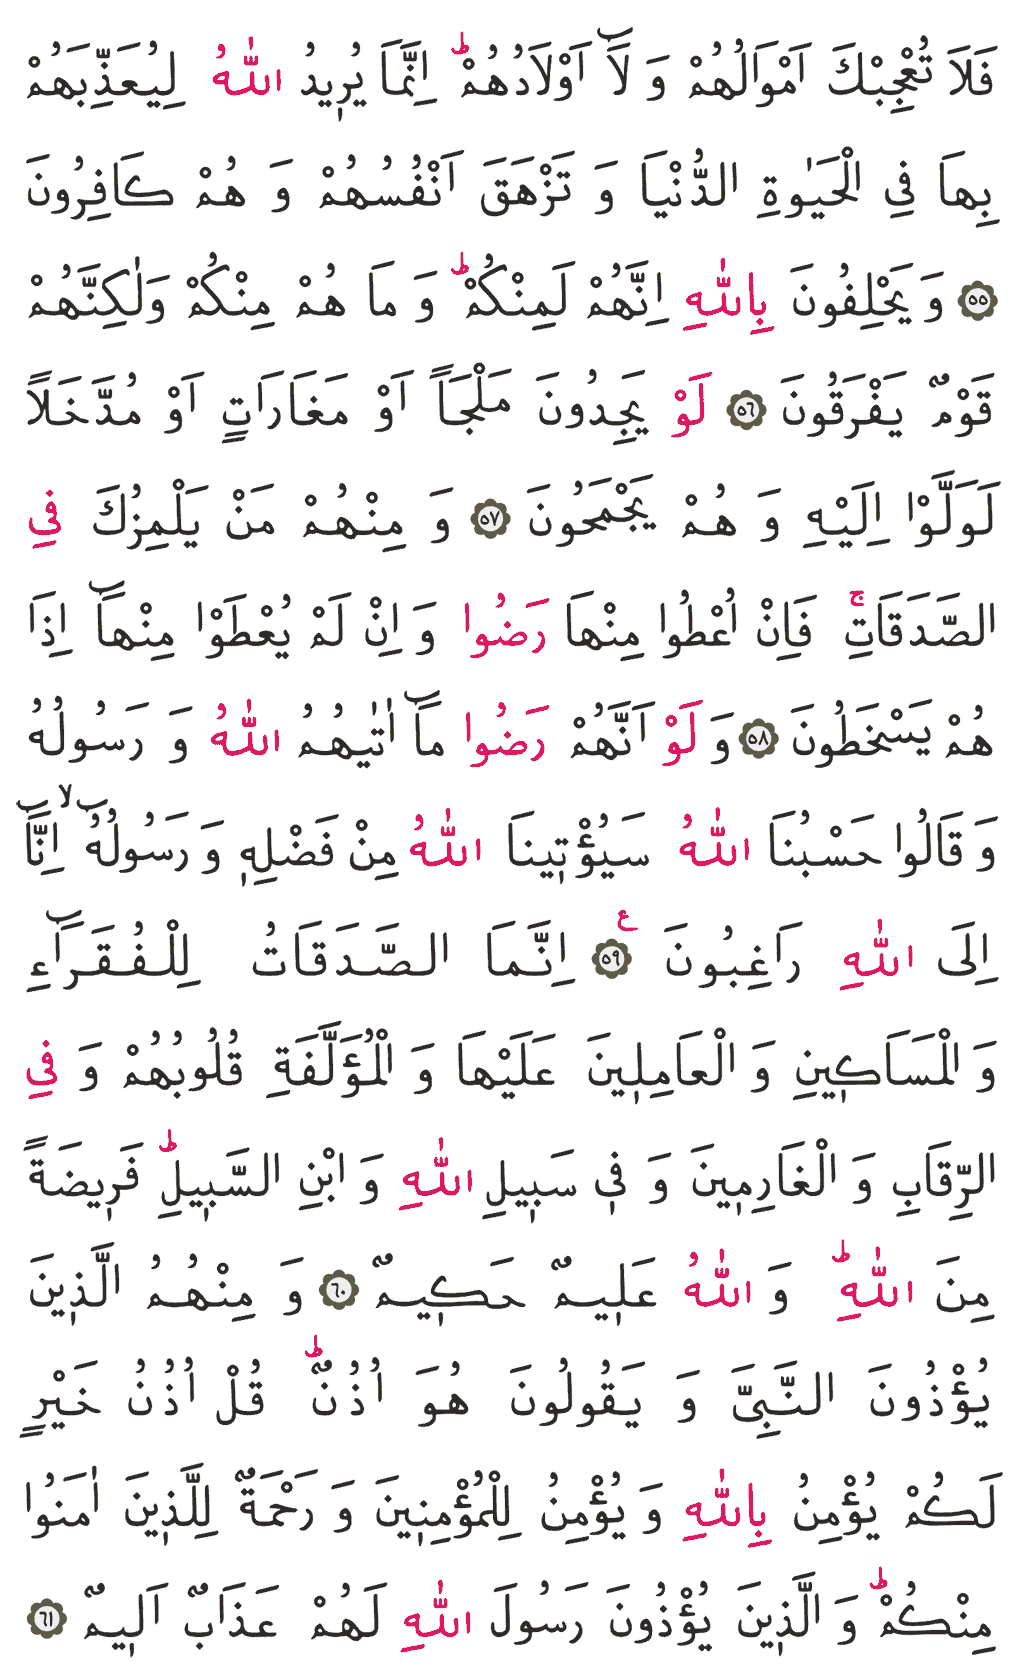 فَلَا تُعْجِبْكَ اَمْوَالُهُمْ وَ لَٓا اَوْلَادُهُمْؕ اِنَّمَا يُرٖيدُ اللّٰهُ لِيُعَذِّبَهُمْ
بِهَا فِي الْحَيٰوةِ الدُّنْيَا وَ تَزْهَقَ اَنْفُسُهُمْ وَ هُمْ كَافِرُونَ
﴿٥٥﴾ وَ يَحْلِفُونَ بِاللّٰهِ اِنَّهُمْ لَمِنْكُمْؕ وَ مَا هُمْ مِنْكُمْ وَلٰكِنَّهُمْ
قَوْمٌ يَفْرَقُونَ ﴿٥٦﴾ لَوْ يَجِدُونَ مَلْجَاً اَوْ مَغَارَاتٍ اَوْ مُدَّخَلاً
لَوَلَّوْا اِلَيْهِ وَ هُمْ يَجْمَحُونَ ﴿٥٧﴾ وَ مِنْهُمْ مَنْ يَلْمِزُكَ فِي
الصَّدَقَاتِۚ فَاِنْ اُعْطُوا مِنْهَا رَضُوا وَ اِنْ لَمْ يُعْطَوْا مِنْهَٓا اِذَا
هُمْ يَسْخَطُونَ ﴿٥٨﴾ وَ لَوْ اَنَّهُمْ رَضُوا مَٓا اٰتٰيهُمُ اللّٰهُ وَ رَسُولُهُ
وَ قَالُوا حَسْبُنَا اللّٰهُ سَيُؤْتٖينَا اللّٰهُ مِنْ فَضْلِهٖ وَ رَسُولُهُٓۙ اِنَّٓا
اِلَى اللّٰهِ رَاغِبُونَ ﴿٥٩﴾ؑ اِنَّمَا الصَّدَقَاتُ لِلْفُقَرَٓاءِ
وَ الْمَسَاكٖينِ وَ الْعَامِلٖينَ عَلَيْهَا وَ الْمُؤَلَّفَةِ قُلُوبُهُمْ وَ فِي
الرِّقَابِ وَ الْغَارِمٖينَ وَ فٖي سَبٖيلِ اللّٰهِ وَ ابْنِ السَّبٖيلِؕ فَرٖيضَةً
مِنَ اللّٰهِؕ وَ اللّٰهُ عَلٖيمٌ حَكٖيمٌ ﴿٦٠﴾ وَ مِنْهُمُ الَّذٖينَ
يُؤْذُونَ النَّبِيَّ وَ يَقُولُونَ هُوَ اُذُنٌؕ قُلْ اُذُنُ خَيْرٍ
لَكُمْ يُؤْمِنُ بِاللّٰهِ وَ يُؤْمِنُ لِلْمُؤْمِنٖينَ وَ رَحْمَةٌ لِلَّذٖينَ اٰمَنُوا
مِنْكُمْؕ وَ الَّذٖينَ يُؤْذُونَ رَسُولَ اللّٰهِ لَهُمْ عَذَابٌ اَلٖيمٌ ﴿٦١﴾